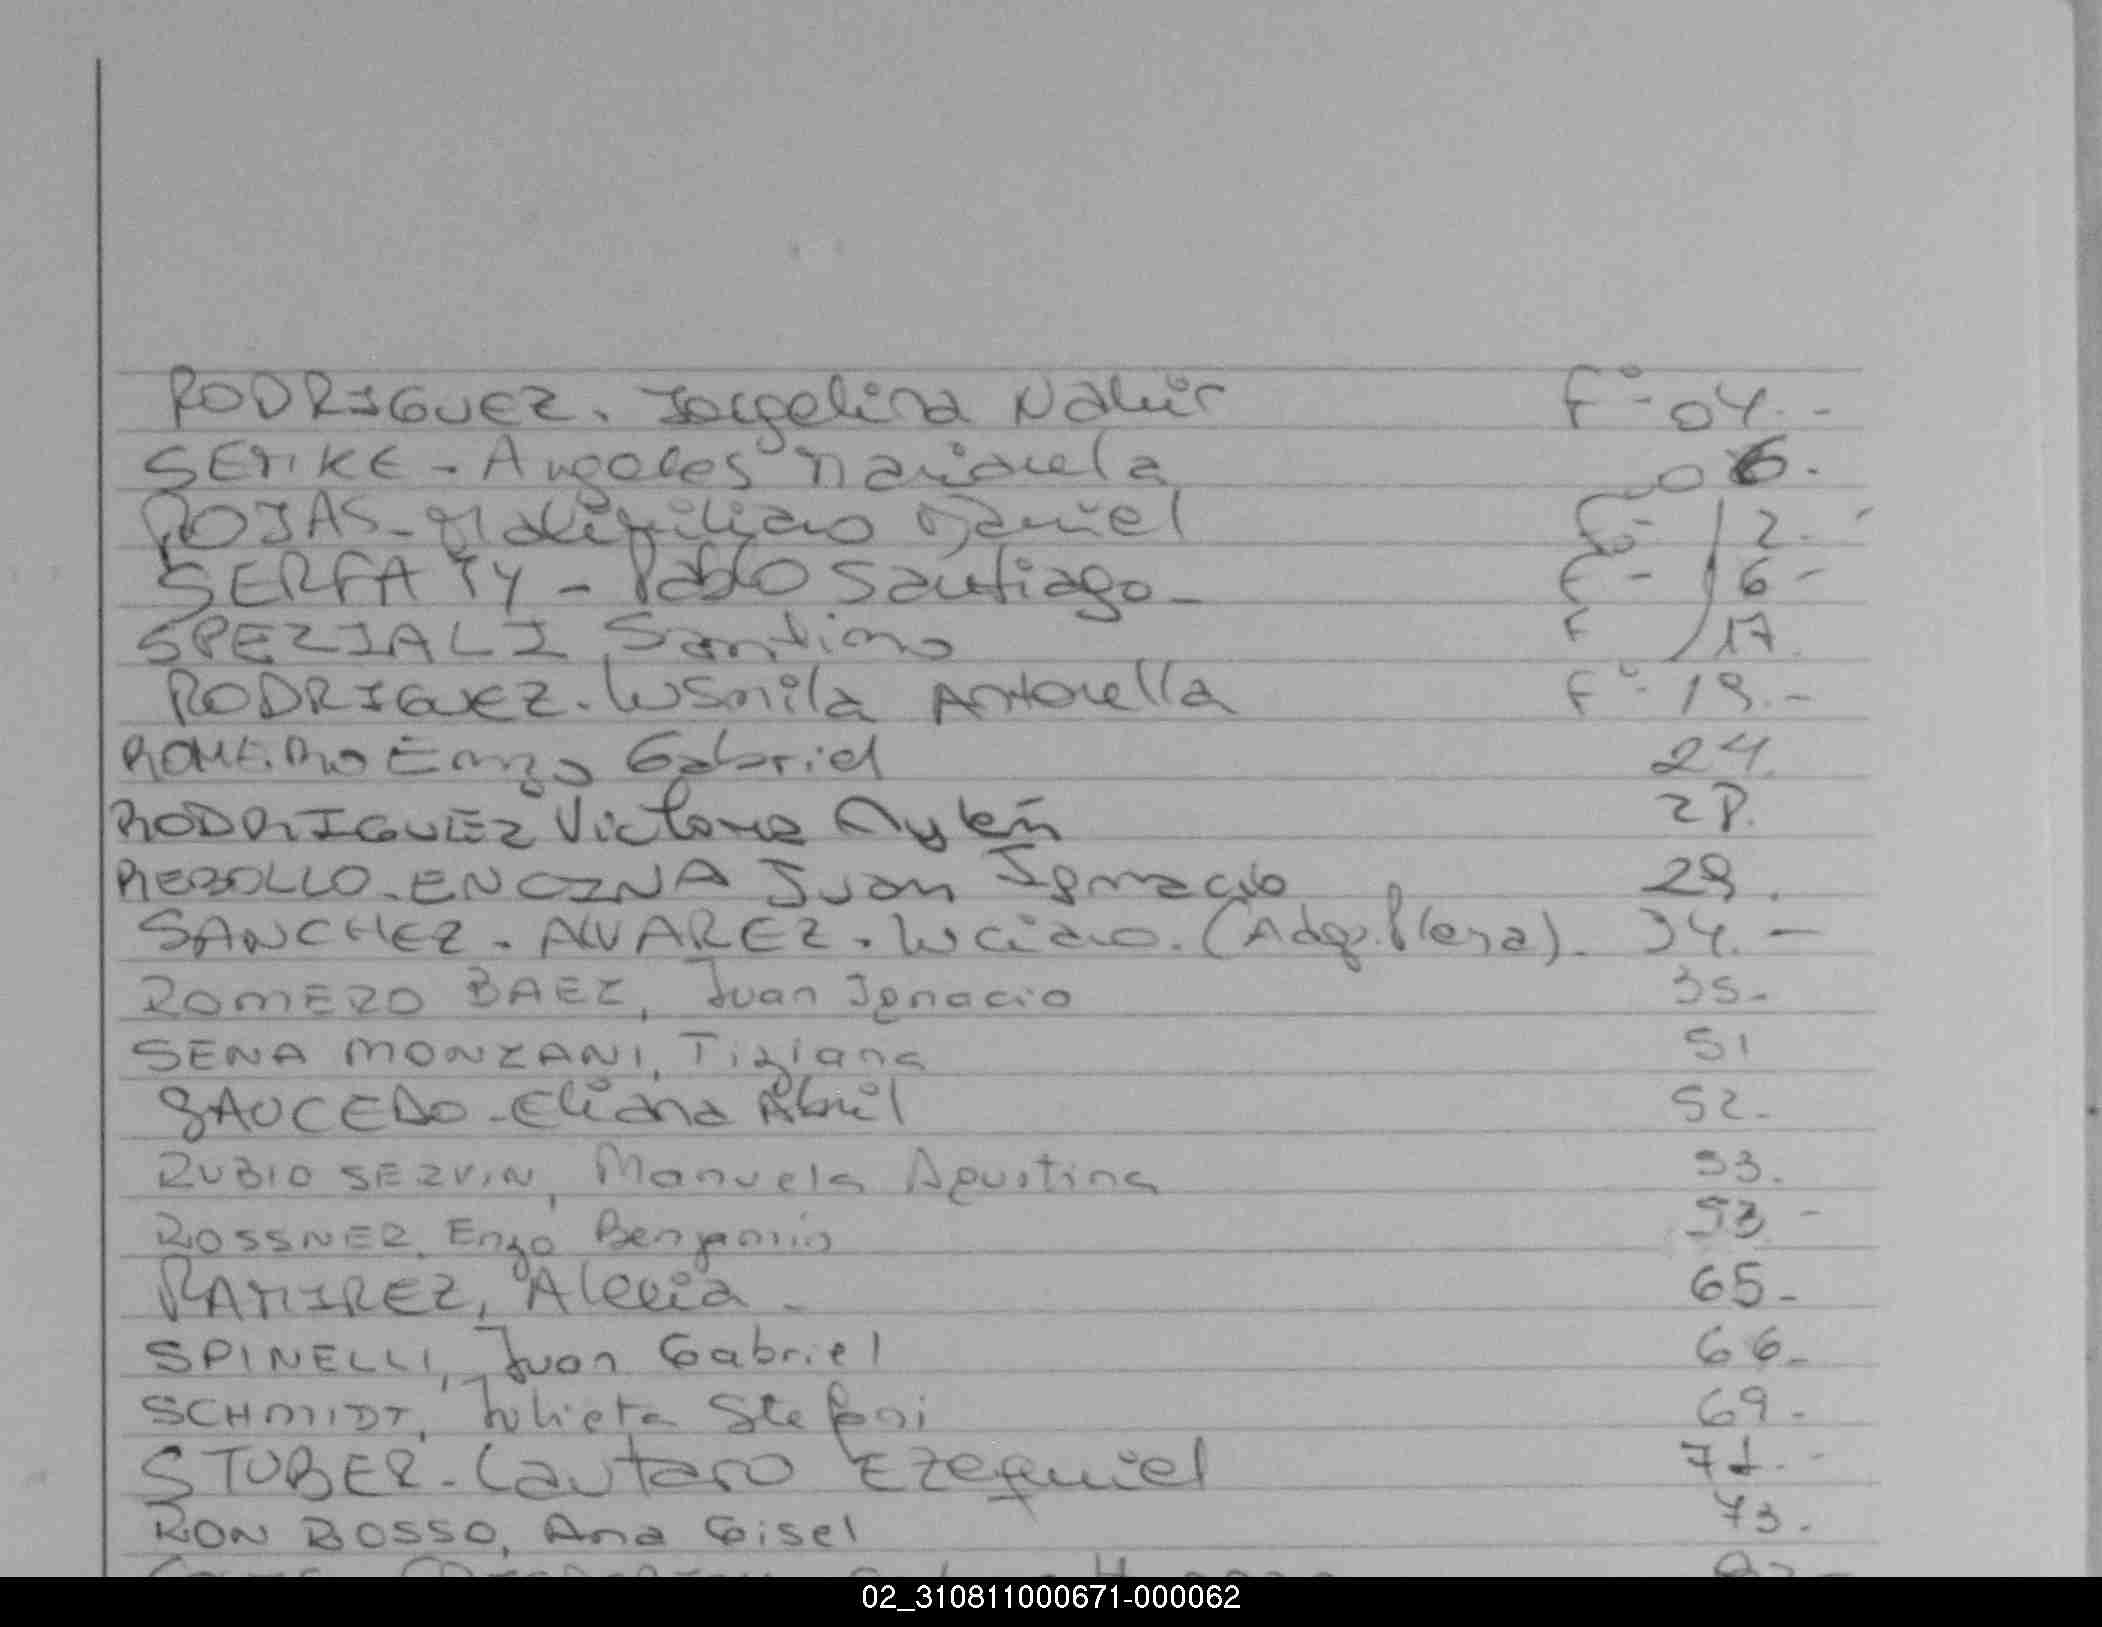 RODRIGUEZ. Jorgelina Nahir F°- 04.-
SETIKE - Angeles Marianela 06.
ROJAS - Maximiliano Daniel F°- 12.-
SERFATY - Pablo Santiago - F - 16 -
SPEZIALI Santino F 17.
RODRIGUEZ. Lusmila Antonella F°- 19.-
ROMERO Enzo Gabriel 24.
RODRIGUEZ Victoria Aylén 28.
REBOLLO - ENCINA Juan Ignacio 29.
SANCHEZ - ALVAREZ. Luciano. (Adop. Plena). 34. -
ROMERO BAEZ, Juan Ignacio 35.-
SENA MONZANI, Tiziana 51
SAUCEDO - Eliana Abril 52.-
RUBIO SERVIN, Manuela Agustina 53.
ROSSNER, Enzo Benjamin 53 -
RAMIREZ, Alexia - 65 -
SPINELLI, Juan Gabriel 66 -
SCHMIDT, Julieta Stefani 69 -
STUBER - Lautaro Ezequiel 71. -
RON BOSSO, Ana Gisel 73.
02_310811000671-000062